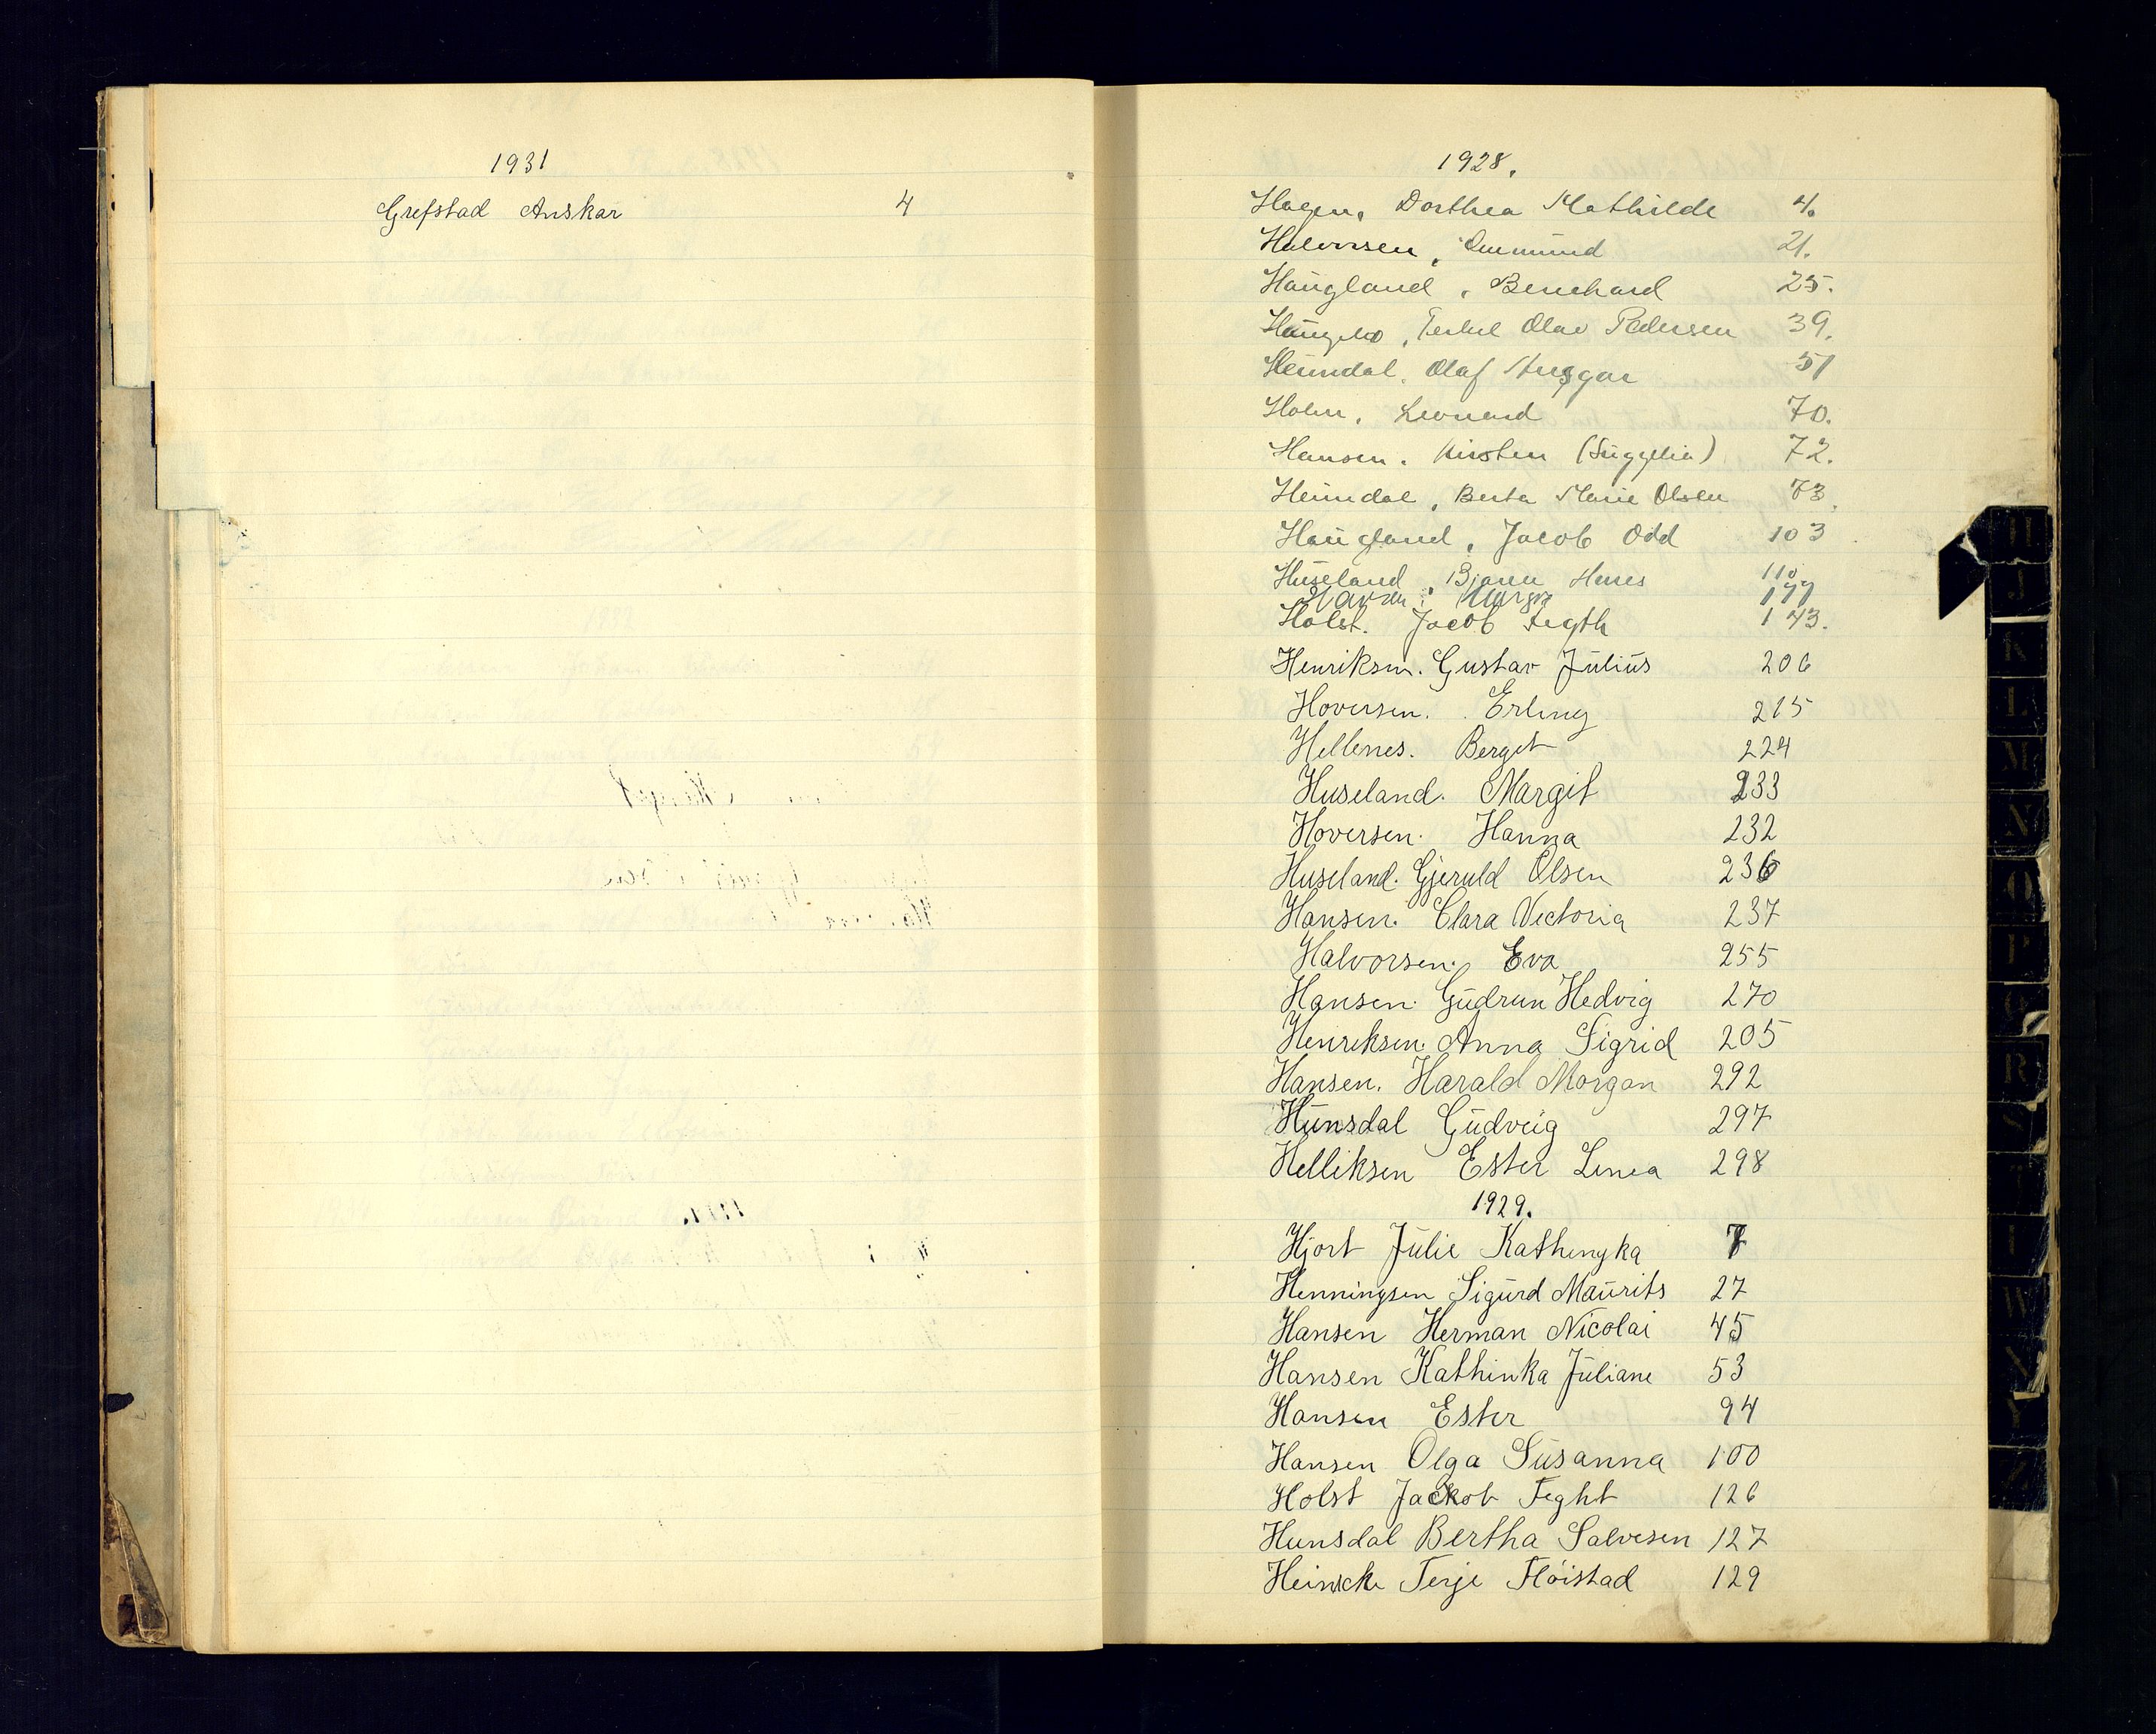 1931
Grefstad Anskar 4
1928.
Hagen, Dorthea Mathilde 4.
Halvorsen, Ommund 21.
Haugland, Bernhard 25.
Olav Pedersen 39.
Heimdal, Olaf Ansgar 51
Holm, Leonard 70.
Hansen, Kirsten 72.
Heimdal, Berta Marie Olsen 73.
Haugland, Jacob Odd 103
Huseland, Bjarne Hans 110
177
Holst. Jacob Fegth 143.
Henriksen. Gustav Julius 206
Hoversen. Erling 215
Hellenes. Berget 224
Huseland. Margit 233
Hoversen. Hanna 232
Huseland. Gjeruld Olsen 236
Hansen. Clara Victoria 237
Halvorsen. Eva 255
Hansen. Gudrun Hedvig 270
Henriksen. Anna Sigrid 205
Hansen. Harald Morgan 292
Hunsdal Gudveig 297
Helliksen Ester Linea 298
1929.
Hjort Julie Kathingka 7
Henningsen Sigurd Maurits 27
Hansen Herman Nicolai 45
Hansen Kathinka Juliane 53
Hansen Ester 94
Hansen Olga Susanna 100
Holst Jackob Feght 126
Hunsdal Bertha Salvesen 127
Heincke Terje Flöistad 129
H
J
K
L
M
N
O
P
Q
R
S
T
W
Y
Z